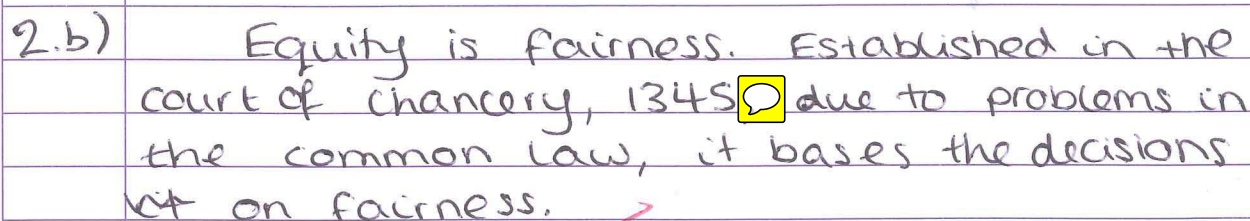 2.b) Equity is fairness. Established in the
court of chancery, 1345 due to problems in
the common law, it bases the decisions
on fairness.